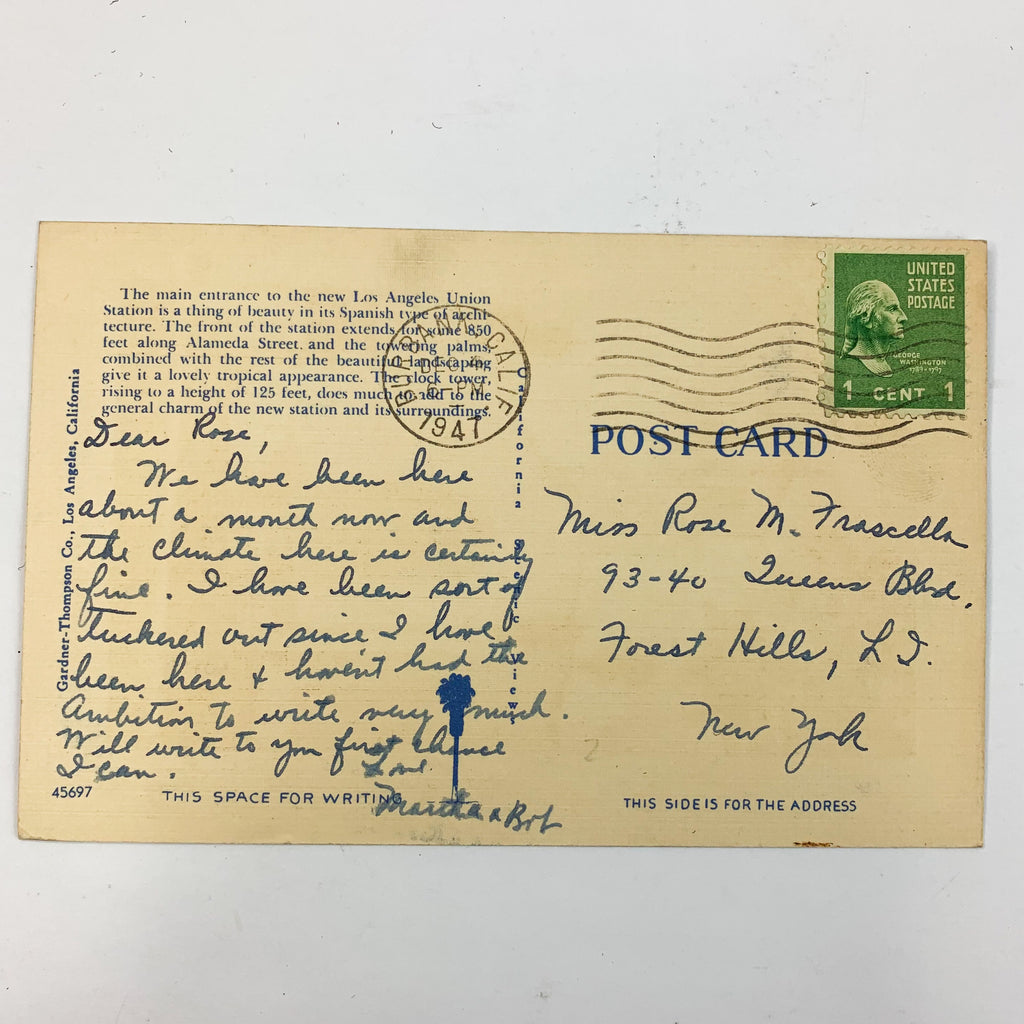 The main entrance to the new Los Angeles Union
Station is a thing of beauty in its Spanish type of archi-
tecture. The front of the station extends for some 850
feet along Alameda Street. and the towering palms,
combined with the rest of the beautiful landscaping
give it a lovely tropical appearance. The clock tower,
rising to a height of 125 feet, does much to add to the
general charm of the new station and its surroundings.
Gardner-Thompson Co., Los Angeles, California
Dear Rose,
We have been here
about a month now and
the climate here is certainly
fine. I have been sort of
tuckered out since I have
been here & haven't had the
Ambition to write very much.
Will write to you first chance
I can.
Love
Martha & Bob
45697
THIS SPACE FOR WRITING
California Scenic Views
BURBANK, CALIF.
DEC 4
PM
1947
UNITED
STATES
POSTAGE
GEORGE
WASHINGTON
1789-1797
1 CENT 1
POST CARD
Miss Rose M. Frascella
93-40 Queens Blvd.
Forest Hills, L I.
New York
THIS SIDE IS FOR THE ADDRESS